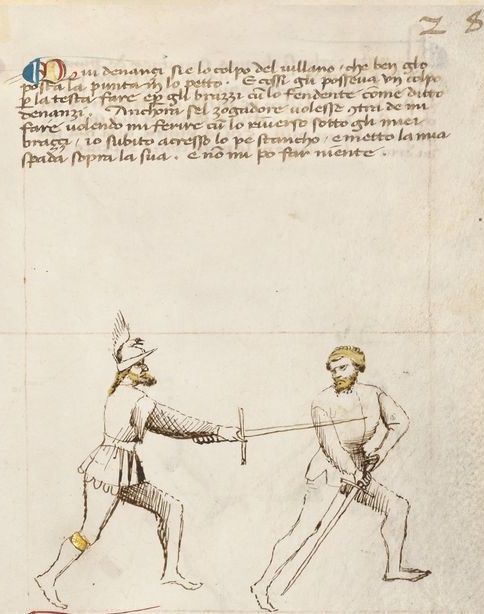 28
Qui denanci si e lo colpo del vilano, che ben gl'o
posta la punta in lo petto. E cossì gli posseva un colpo
p la testa fare e p gli brazzi cum lo fendente come ditto
denanzi. Anchora sel zogadore volesse contra de mi
fare volendo mi ferire cum lo riverso sotto gli miei
brazzi, io subito acresso lo pe stancho, e metto la mia
spada sopra la sua. e non mi po far niente.